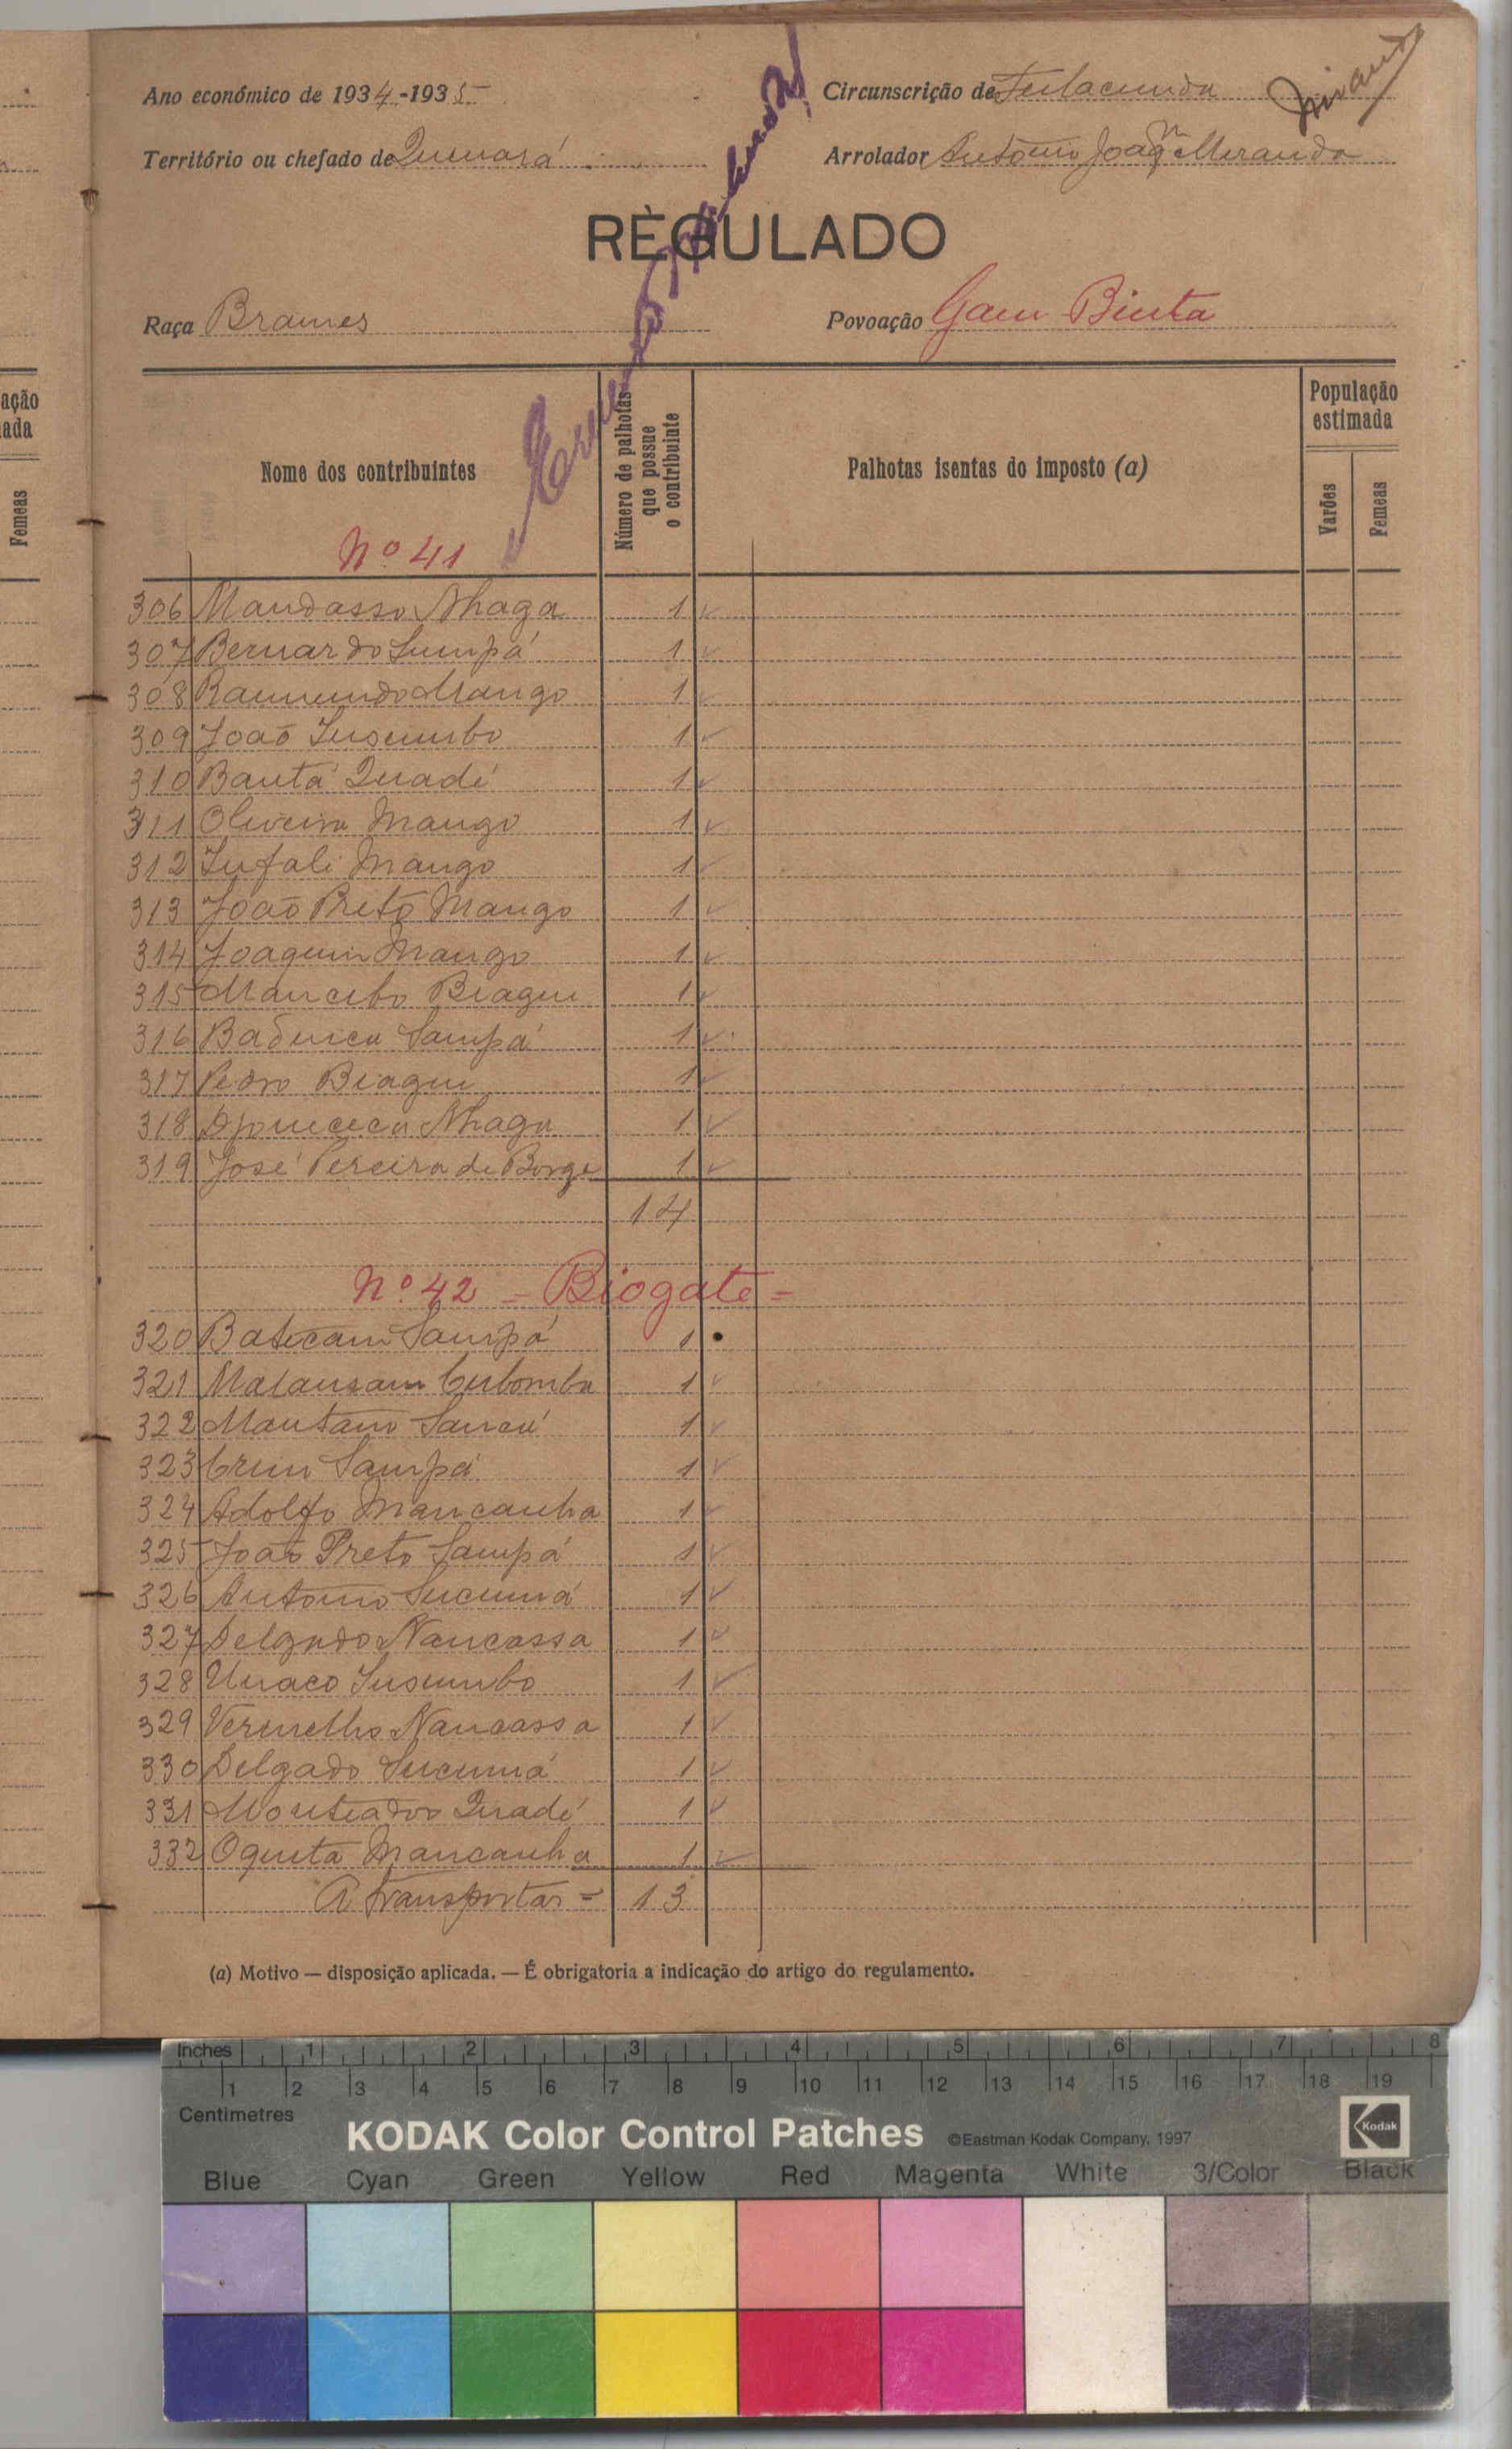 Ano económico de 1934-1935
Circunscrição de Fulacunda
Território ou chefado de Quinará
Arrolador António João Miranda
REGULADO
Raça Brames
Povoação Gam Binta
Nome dos contribuintes
Número de palhotas que possue o contribuinte
Palhotas isentas do imposto (a)
População estimada
Varões
Femeas
ação
ada
Femeas
Nº 41
306 Mandasso Nhaga 1
307 Bernardo Sumpá 1
308 Raimundo Mango 1
309 João Insumbo 1
310 Banta Quadé 1
311 Oliveira Mango 1
312 Infali Mango 1
313 João Preto Mango 1
314 Joaquim Mango 1
315 Mancebo Biague 1
316 Sampá 1
317 Pedro Biague 1
318 Nhaga 1
319 José Pereira de Borge 1
14
Nº 42 = Biogate =
320 Batecam Sampá 1
321 Malansam 1
322 Mantano 1
323 Sampá 1
324 Adolfo Mancanha 1
325 João Preto Sampá 1
326 António Sucumá 1
327 Delgado Nancassa 1
328 Unaco Insumbo 1
329 Vermelho Nancassa 1
330 Delgado Sucumá 1
331 Quadé 1
332 Oquita Mancanha 1
A transportar = 13
(a) Motivo — disposição aplicada. — É obrigatoria a indicação do artigo do regulamento.
Inches 1 2 3 4 5 6 7 8
1 2 3 4 5 6 7 8 9 10 11 12 13 14 15 16 17 18 19
Centimetres
KODAK Color Control Patches ©Eastman Kodak Company, 1997 Kodak
Blue Cyan Green Yellow Red Magenta White 3/Color Black